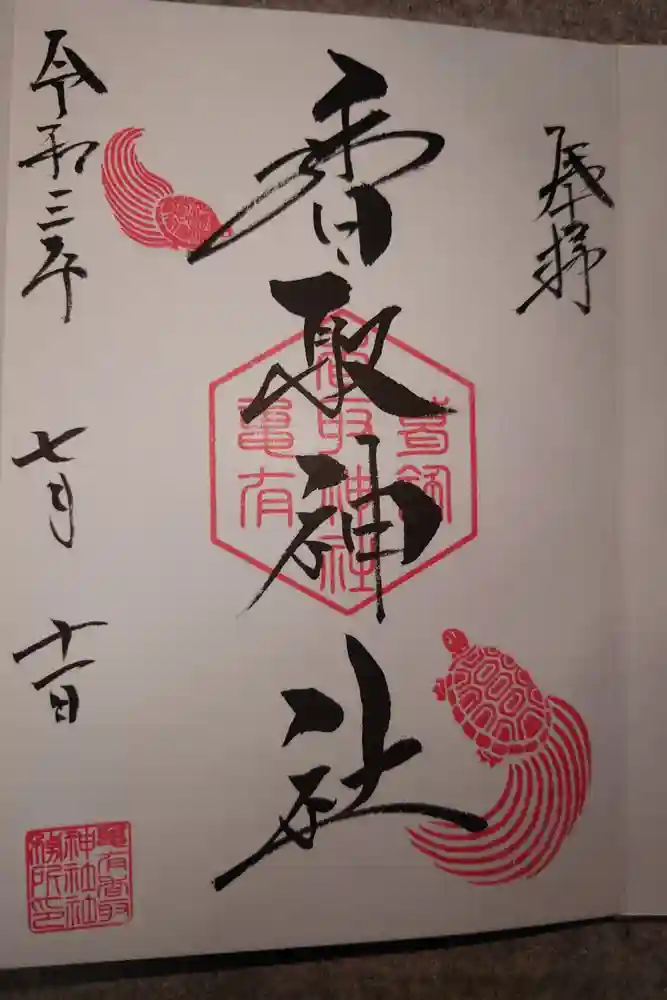 奉拝
香取神社
葛飾
香取神社
亀有
令和三年
七月
十一日
亀有香取
神社社
務所印